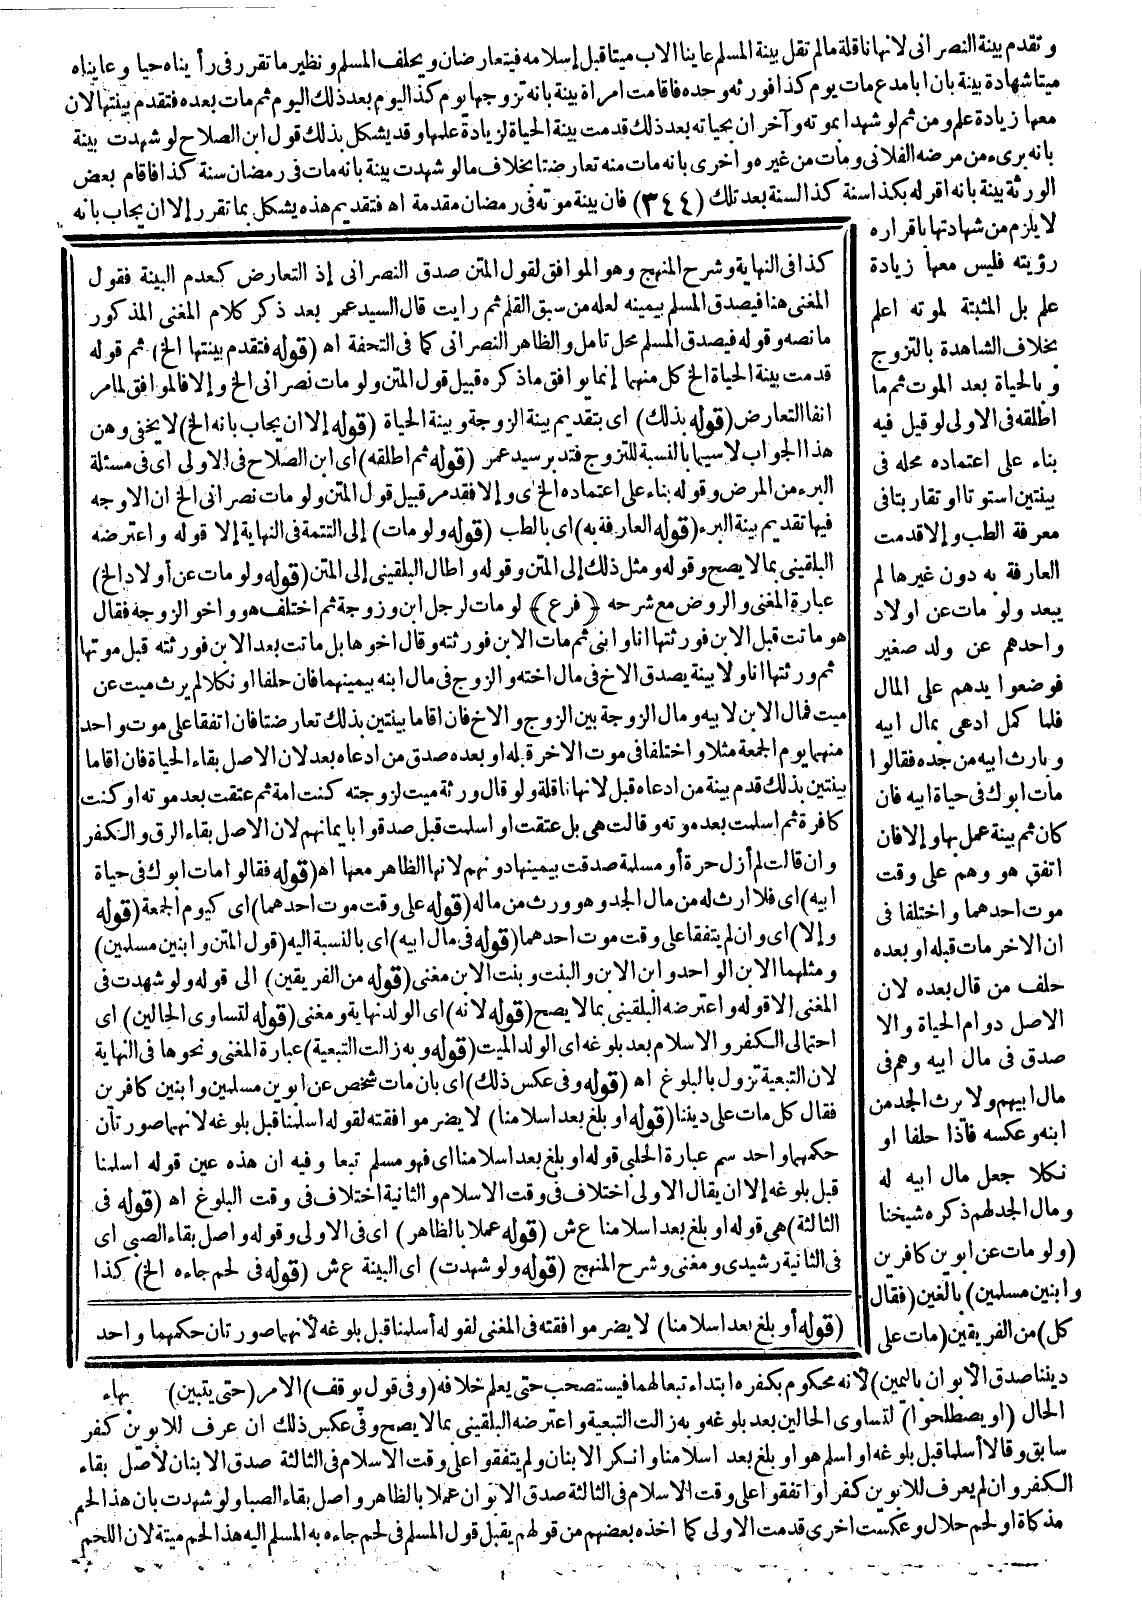 وتقدم بينة النصرانى لانها ناقلة مالم تقل بينة المسلم عاينا الاب ميتا قبل إسلامه فيتعارضان ويحلف المسلم ونظير ما تقرر فى رأيناه حيا وعايناه
ميتا شهادة بينة بان ابا مدع مات يوم كذا فورثه وحده فاقامت امراة بينة بانه تزوجها يوم كذا ليوم بعد ذلك اليوم ثم مات بعده فتقدم بينتها لان
معها زيادة علم ومن ثم لو شهدا بموته وآخران بحياته بعد ذلك قدمت بينة الحياة لزيادة علمها وقد يشكل بذلك قول ابن الصلاح لو شهدت بينة
بانه برىء من مرضه الفلانى ومات من غيره واخرى بانه مات منه تعارضتا بخلاف مالو شهدت بينة بانه مات فى رمضان سنة كذا فاقام بعض
الورثة بينة بانه اقر له بكذا سنة كذا لسنة بعد تلك (٣٤٤) فان بينة موته فى رمضان مقدمة اه فتقديم هذه يشكل بما تقرر إلا ان يجاب بانه
لا يلزم من شهادتها باقراره
رؤيته فليس معها زيادة
علم بل المثبتة لموته اعلم
بخلاف الشاهدة بالتزوج
وبالحياة بعد الموت ثم ما
اطلقه فى الاولى لو قيل فيه
بناء على اعتماده محله فى
بينتين استوتا او تقاربتا فى
معرفة الطب وإلا قدمت
العارفة به دون غيرها لم
يبعد ولو مات عن اولاد
واحدهم عن ولد صغير
فوضعوا يدهم على المال
فلما كمل ادعى بمال ابيه
وبارث ابيه من جده فقالوا
مات ابوك فى حياة ابيه فان
كان ثم بينة عمل بها وإلا فان
اتفق هو وهم على وقت
موت احدهما واختلفا فى
ان الاخر مات قبله او بعده
حلف من قال بعده لان
الاصل دوام الحياة والا
صدق فى مال ابيه وهم فى
مال ابيهم ولا يرث الجد من
ابنه وعكسه فأذا حلفا او
نكلا جعل مال ابيه له
ومال الجد لهم ذكره شيخنا
(ولو مات عن ابوين كافرين
وابنين مسلمين) بالغين (فقال
كل) من الفريقين (مات على
كذا فى النهاية وشرح المنهج وهو الموافق لقول المتن صدق النصرانى إذ التعارض كعدم البينة فقول
المغنى هنا فيصدق المسلم بيمينه لعله من سبق القلم ثم رايت قال السيد عمر بعد ذكر كلام المغنى المذكور
ما نصه وقوله فيصدق المسلم محل تامل والظاهر النصرانى كما فى التحفة اه (قوله فتقدم بينتها الخ) ثم قوله
قدمت بينة الحياة الخ كل منهما إنما يوافق ما ذكره قبيل قول المتن ولو مات نصرانى الخ وإلا فالموافق لمامر
انفا التعارض (قوله بذلك) اى بتقديم بينة الزوجة وبينة الحياة (قوله إلا ان يجاب بانه الخ) لا يخفى وهن
هذا الجواب لاسيما بالنسبة للتزوج فتدبر سيد عمر (قوله ثم اطلقه) اى ابن الصلاح فى الاولى اى فى مسئلة
البرء من المرض وقوله بناء على اعتماده الخ اى وإلا فقدمر قبيل قول المتن ولو مات نصرانى الخ ان الاوجه
فيها تقديم بينة البرء (قوله العارفة به) اى بالطب (قوله ولو مات) إلى التتمة فى النهاية إلا قوله واعترضه
البلقينى بما لا يصح وقوله ومثل ذلك إلى المتن وقوله واطال البلقينى إلى المتن (قوله ولو مات عن أولاد الخ)
عبارة المغنى والروض مع شرحه {فرع} لو مات لرجل ابن وزوجة ثم اختلف هو واخو الزوجة فقال
هو ماتت قبل الابن فورثتها انا وابنى ثم مات الابن فورثته وقال اخوها بل ماتت بعد الابن فورثته قبل موتها
ثم ورثتها انا ولا بينة يصدق الاخ فى مال اخته والزوج فى مال ابنه بيمينهما فان حلفا او نكلا لم يرث ميت عن
ميت فمال الابن لابيه ومال الزوجة بين الزوج والاخ فان اقاما بينتين بذلك تعارضتا فان اتفقا على موت واحد
منهما يوم الجمعة مثلا واختلفا فى موت الاخر قبله او بعده صدق من ادعاه بعد لان الاصل بقاء الحياة فان اقاما
بينتين بذلك قدم بينة من ادعاه قبل لانها ناقلة ولو قال ورثة ميت لزوجته كنت امة ثم عتقت بعد موته او كنت
كافرة ثم اسلمت بعد موته وقالت هى بل عتقت او اسلمت قبل صدقوا بايمانهم لان الاصل بقاء الرق والكفر
وان قالت لم أزل حرة أو مسلمة صدقت بيمينها دونهم لانها الظاهر معها اه (قوله فقالوا مات ابوك فى حياة
ابيه) اى فلا ارث له من مال الجد وهو ورث من ماله (قوله على وقت موت احدهما) اى كيوم الجمعة (قوله
وإلا) اى وان لم يتفقا على وقت موت احدهما (قوله فى مال ابيه) اى بالنسبة اليه (قول المتن وابنين مسلمين)
ومثلهما الابن الواحد وابن الابن والبنت وبنت الابن مغنى (قوله من الفريقين) الى قوله ولو شهدت فى
المغنى إلا قوله واعترضه البلقينى بما لا يصح (قوله لانه) اى الولد نهاية ومغنى (قوله لتساوى الحالين) اى
احتمالى الكفر والاسلام بعد بلوغه اى الولد الميت (قوله وبه زالت التبعية) عبارة المغنى ونحوها فى النهاية
لان التبعية تزول بالبلوغ اه (قوله وفى عكس ذلك) اى بان مات شخص عن ابوين مسلمين وابنين كافرين
فقال كل مات على ديننا (قوله او بلغ بعد اسلامنا) لا يضر موافقته لقوله اسلمنا قبل بلوغه لانهما صورتأن
حكمهما واحد سم عبارة الحلبى قوله او بلغ بعد اسلامنا اى فهو مسلم تبعا وفيه ان هذه عين قوله اسلمنا
قبل بلوغه إلا ان يقال الاولى اختلاف فى وقت الاسلام والثانية اختلاف فى وقت البلوغ اه (قوله فى
الثالثة) هى قوله او بلغ بعد اسلامنا ع ش (قوله عملا بالظاهر) اى فى الاولى وقوله واصل بقاء الصبى اى
فى الثانية رشيدى ومغنى وشرح المنهج (قوله ولو شهدت) اى البينة ع ش (قوله فى لحم جاءه الخ) كذا
(قوله أو بلغ بعد اسلامنا) لا يضر موافقته فى المغنى لقوله أسلمنا قبل بلوغه لأنهما صورتان حكمهما واحد
ديننا صدق الأبوان باليمين) لأنه محكوم بكفره ابتداء تبعا لهما فيستصحب حتى يعلم خلافه (وفى قول يوقف) الامر (حتى يتبين) بهاء
الحال (او يصطلحوا) لتساوى الحالين بعد بلوغه وبه زالت التبعية واعترضه البلقينى بما لا يصح وفى عكس ذلك ان عرف للابوين كفر
سابق وقالا أسلما قبل بلوغه او اسلم هو او بلغ بعد اسلامنا وانكر الابنان ولم يتفقوا على وقت الاسلام فى الثالثة صدق الابنان لأصل بقاء
الكفر وان لم يعرف للابوين كفر او اتفقوا على وقت الاسلام فى الثالثة صدق الابوان عملا بالظاهر واصل بقاء الصبا ولو شهدت بان هذا لحم
مذكاة او لحم حلال وعكست اخرى قدمت الاولى كما اخذه بعضهم من قولهم يقبل قول المسلم فى لحم جاءه به المسلم اليه هذا لحم ميتة لان اللحم